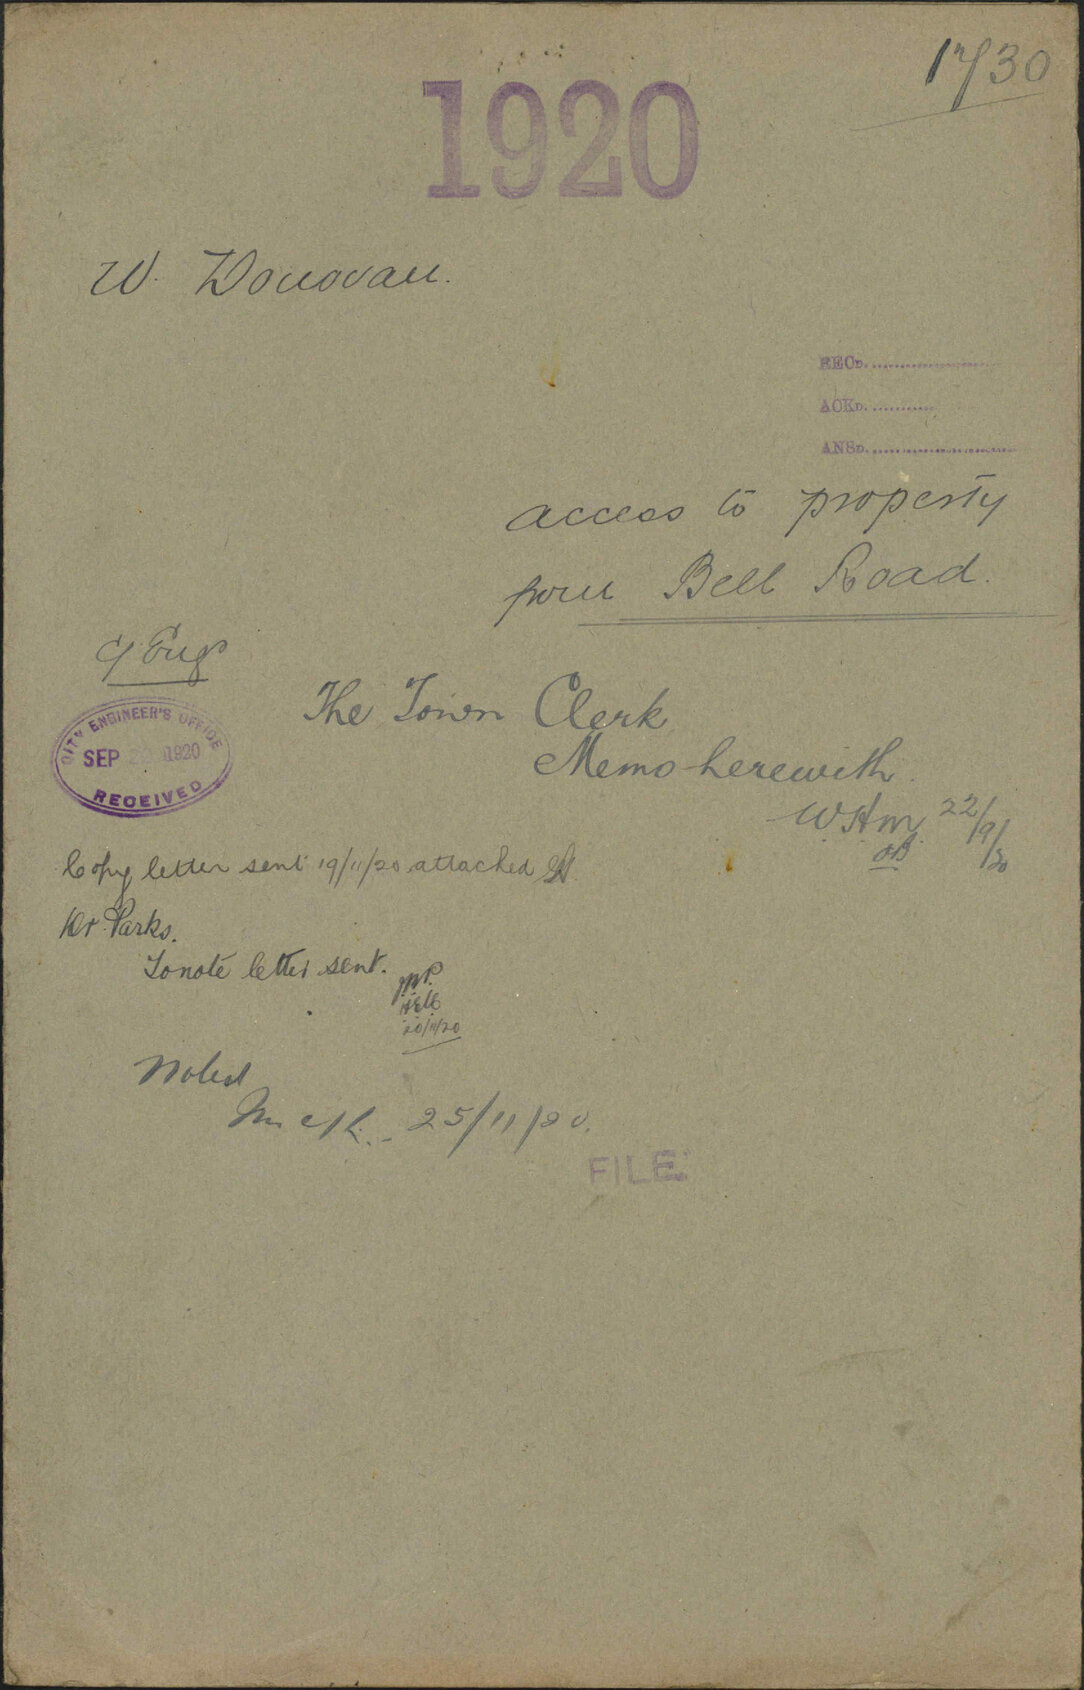 1730
1920
W. Donovan.
RECD.
ACKD.
ANSD.
access to property
from Bell Road.
C/ Engr
The Town Clerk
Memo herewith.
CITY ENGINEER'S OFFICE
SEP 1920
RECEIVED
WHM 22/9/20
Copy letter sent 19/11/20 attached
Dr Parks.
To note letter sent.
20/11/20
Noted
25/11/20.
FILE